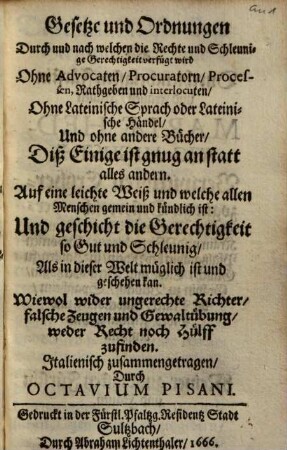 Gesetze und Ordnungen
Durch und nach welchen die Rechte und Schleuni-
ge Gerechtigkeit verfügt wird
Ohne Advocaten/ Procuratorn/ Proces-
sen, Rathgeben und interlocuten/
Ohne Lateinische Sprach oder Lateini-
sche Händel/
Und ohne andere Bücher/
Diß Einige ist gnug an statt
alles andern.
Auf eine leichte Weiß und welche allen
Menschen gemein und kündlich ist:
Und geschicht die Gerechtigkeit
so Gut und Schleunig/
Als in dieser Welt müglich ist und
geschehen kan.
Wiewol wider ungerechte Richter/
falsche Zeugen und Gewaltübung/
weder Recht noch Hülff
zufinden.
Italienisch zusammengetragen/
Durch
OCTAVIUM PISANI.
Gedruckt in der Fürstl. Pfaltzg. Residentz Stadt
Sultzbach/
Durch Abraham Lichtenthaler/ 1666.